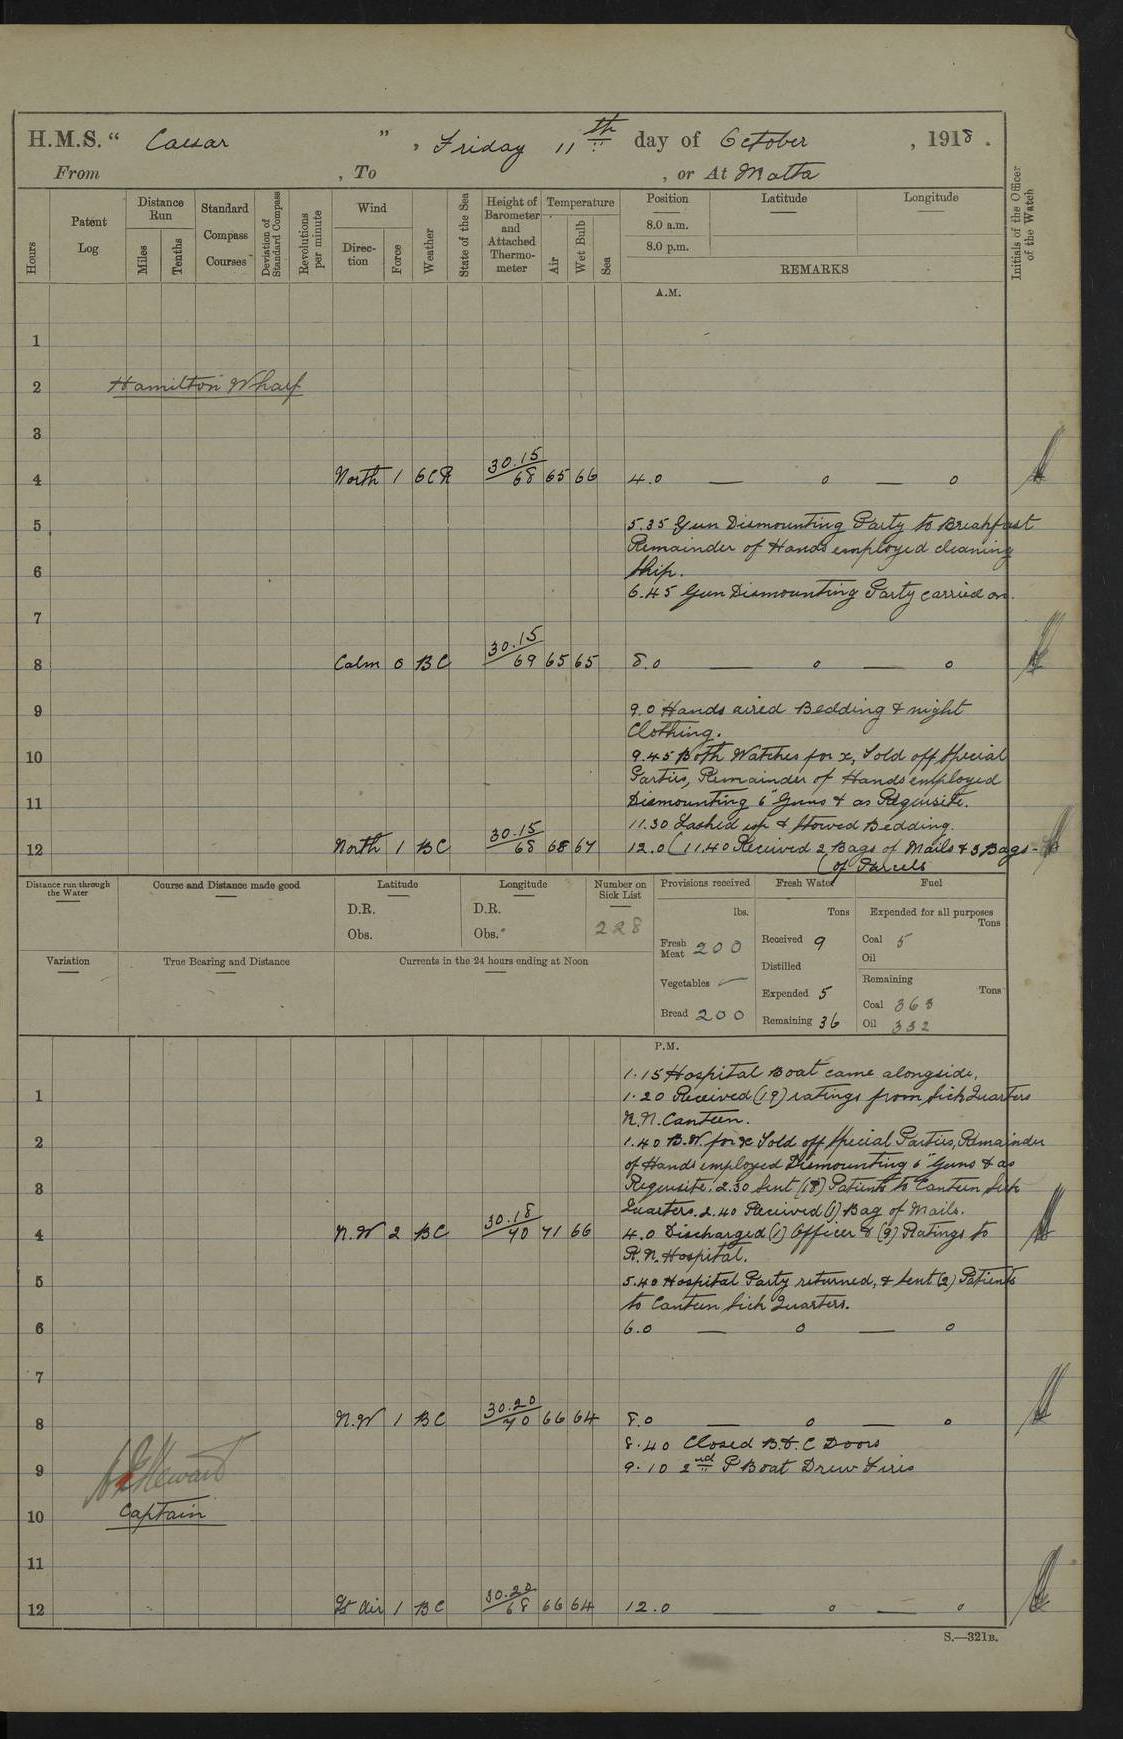 H.M.S. “ Caesar ”, Friday 11th day of October, 1918.
From , To , or At Malta
Hours
Patent Log
Distance Run
Miles
Tenths
Standard Compass Courses
Deviation of Standard Compass
Revolutions per minute
Wind
Direction
Force
Weather
State of the Sea
Height of Barometer and Attached Thermometer
Temperature
Air
Wet Bulb
Sea
Position
8.0 a.m.
8.0 p.m.
Latitude
Longitude
REMARKS
Initials of the Officer of the Watch
A.M.
1
2 Hamilton Wharf
3
4 North 1 BCR 30.15/68 65 66 4.0 — o — o
5 5.35 Gun Dismounting Party to Breakfast
Remainder of Hands employed cleaning
6 Ship.
6.45 Gun Dismounting Party carried on.
7
8 Calm 0 BC 30.15/69 65 65 8.0 — o — o
9 9.0 Hands aired Bedding & night
Clothing.
10 9.45 Both Watches for x, Told off Special
Parties, Remainder of Hands employed
11 Dismounting 6" Guns & as Requisite.
11.30 Lashed up & Stowed Bedding.
12 North 1 BC 30.15/68 68 67 12.0 (11.40 Received 2 Bags of Mails & 3 Bags -
(of Parcels
Distance run through the Water
Course and Distance made good
Latitude
D.R.
Obs.
Longitude
D.R.
Obs.
Number on Sick List
228
Provisions received
lbs.
Fresh Meat 200
Vegetables —
Bread 200
Fresh Water
Tons
Received 9
Distilled
Expended 5
Remaining 36
Fuel
Expended for all purposes
Tons
Coal 5
Oil
Remaining
Tons
Coal 363
Oil 332
Variation
True Bearing and Distance
Currents in the 24 hours ending at Noon
P.M.
1.15 Hospital Boat came alongside.
1 1.20 Received (19) ratings from Sick Quarters
R.N. Canteen.
2 1.40 B.W. for x Told off Special Parties, Remainder
of Hands employed Dismounting 6" Guns & as
3 Requisite. 2.30 Sent (18) Patients to Canteen Sick
Quarters. 2.40 Received (1) Bag of Mails.
4 N.W 2 BC 30.18/70 71 66 4.0 Discharged (1) Officer & (9) Ratings to
R.N. Hospital.
5 5.40 Hospital Party returned, & sent (2) Patients
to Canteen Sick Quarters.
6 6.0 — o — o
7
8 N.W 1 BC 30.20/70 66 64 8.0 — o — o
8.40 Closed B & C Doors
9 9.10 2nd P Boat Drew Fires
10 Captain
11
12 Lt Air 1 BC 30.20/68 66 64 12.0 — o — o
S.—321B.